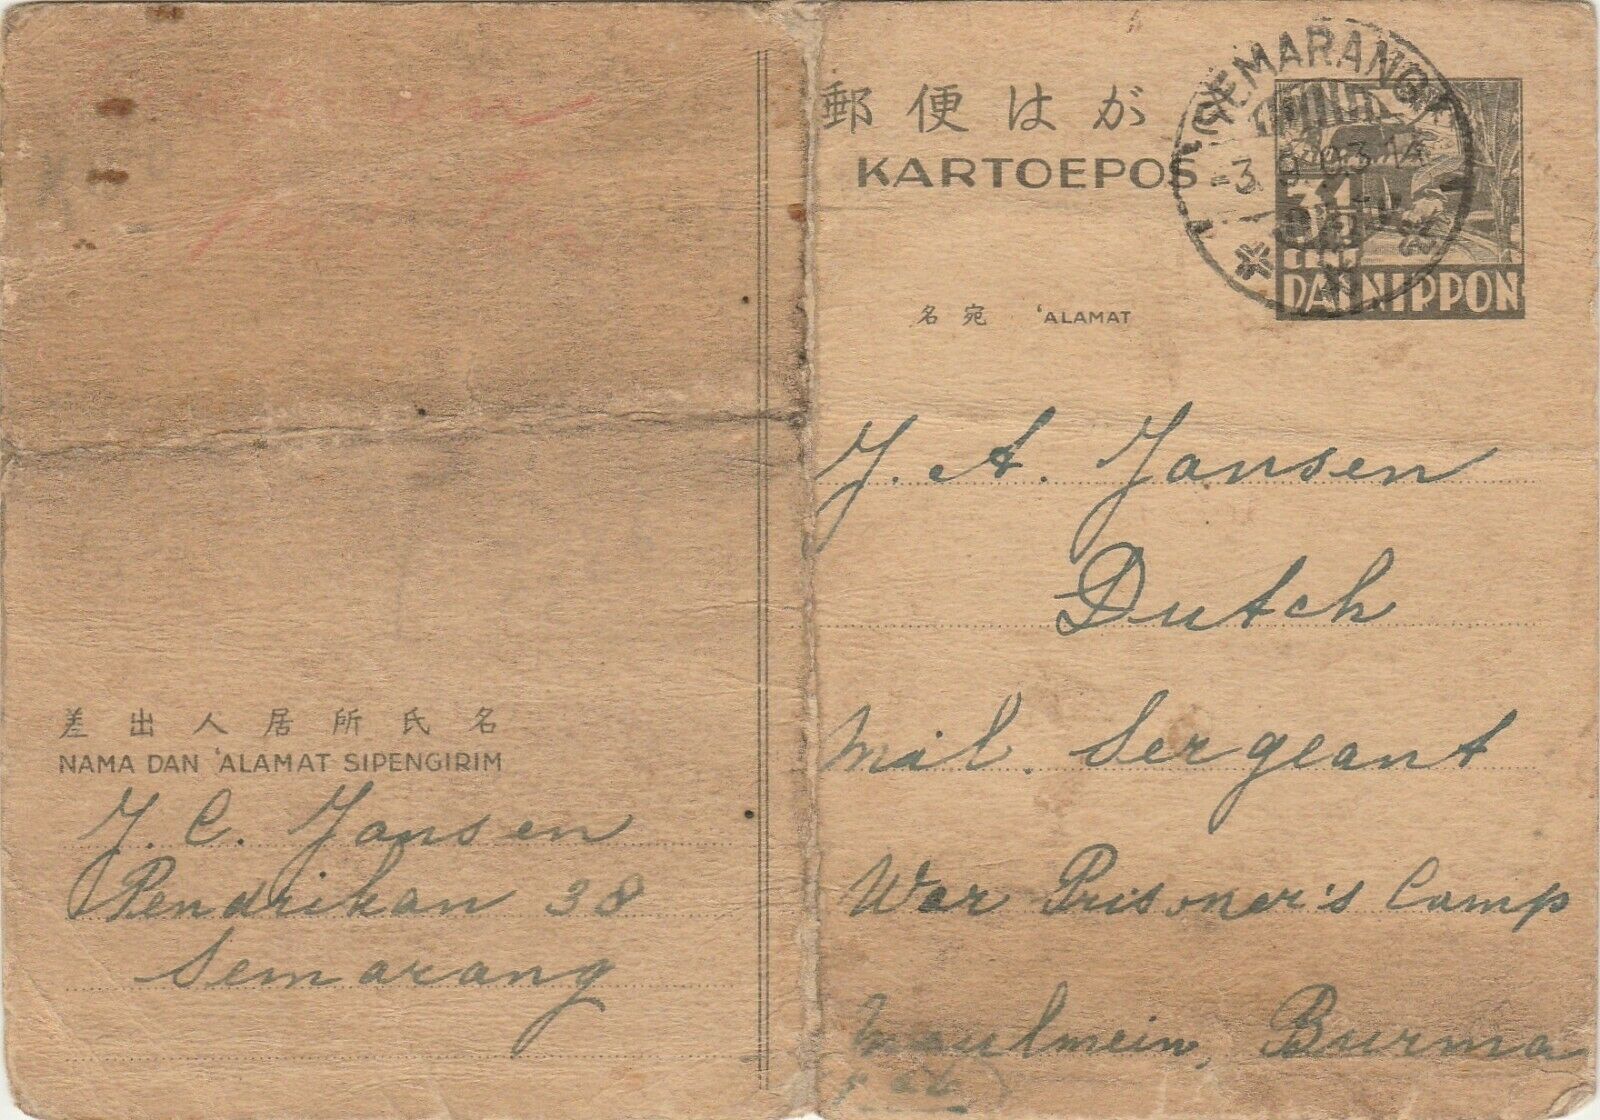 郵便はがき
KARTOEPOS
SEMARANG
3½
CENT
DAI NIPPON
名宛 'ALAMAT
J. A. Jansen
Dutch
Mil. Sergeant
War Prisoner's Camp
Maulmein, Burma
差出人居所氏名
NAMA DAN 'ALAMAT SIPENGIRIM
J. C. Jansen
Pendrikan 38
Semarang